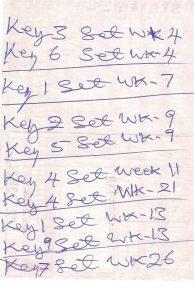 Key 3 Set WK 4
Key 6 Set WK-4
Key 1 Set WK-7
Key 2 Set WK-9
Key 5 Set WK-9
Key 4 Set Week 11
Key 4 Set WK-21
Key 1 Set WK-13
Key 9 Set WK-13
Key 7 Set WK 26